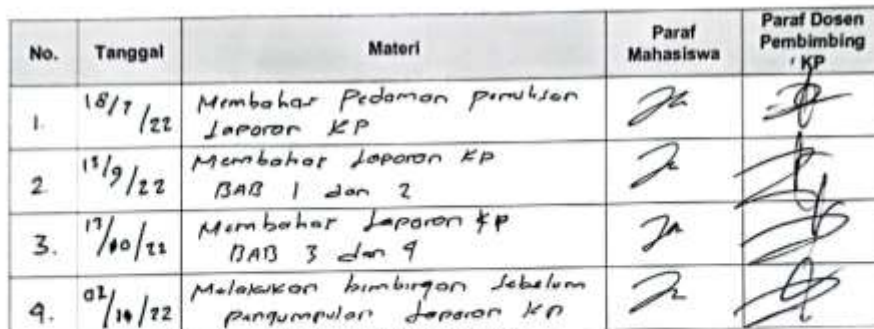 No. Tanggal Materi Paraf Mahasiswa Paraf Dosen Pembimbing KP
1. 18/7/22 Membahas Pedoman penulisan
Laporan KP
2 /9/22 Membahas Laporan KP
BAB 1 dan 2
3. Membahas Laporan KP
BAB 3 dan 4
4. /22 Melakukan bimbingan sebelum
pengumpulan Laporan KP